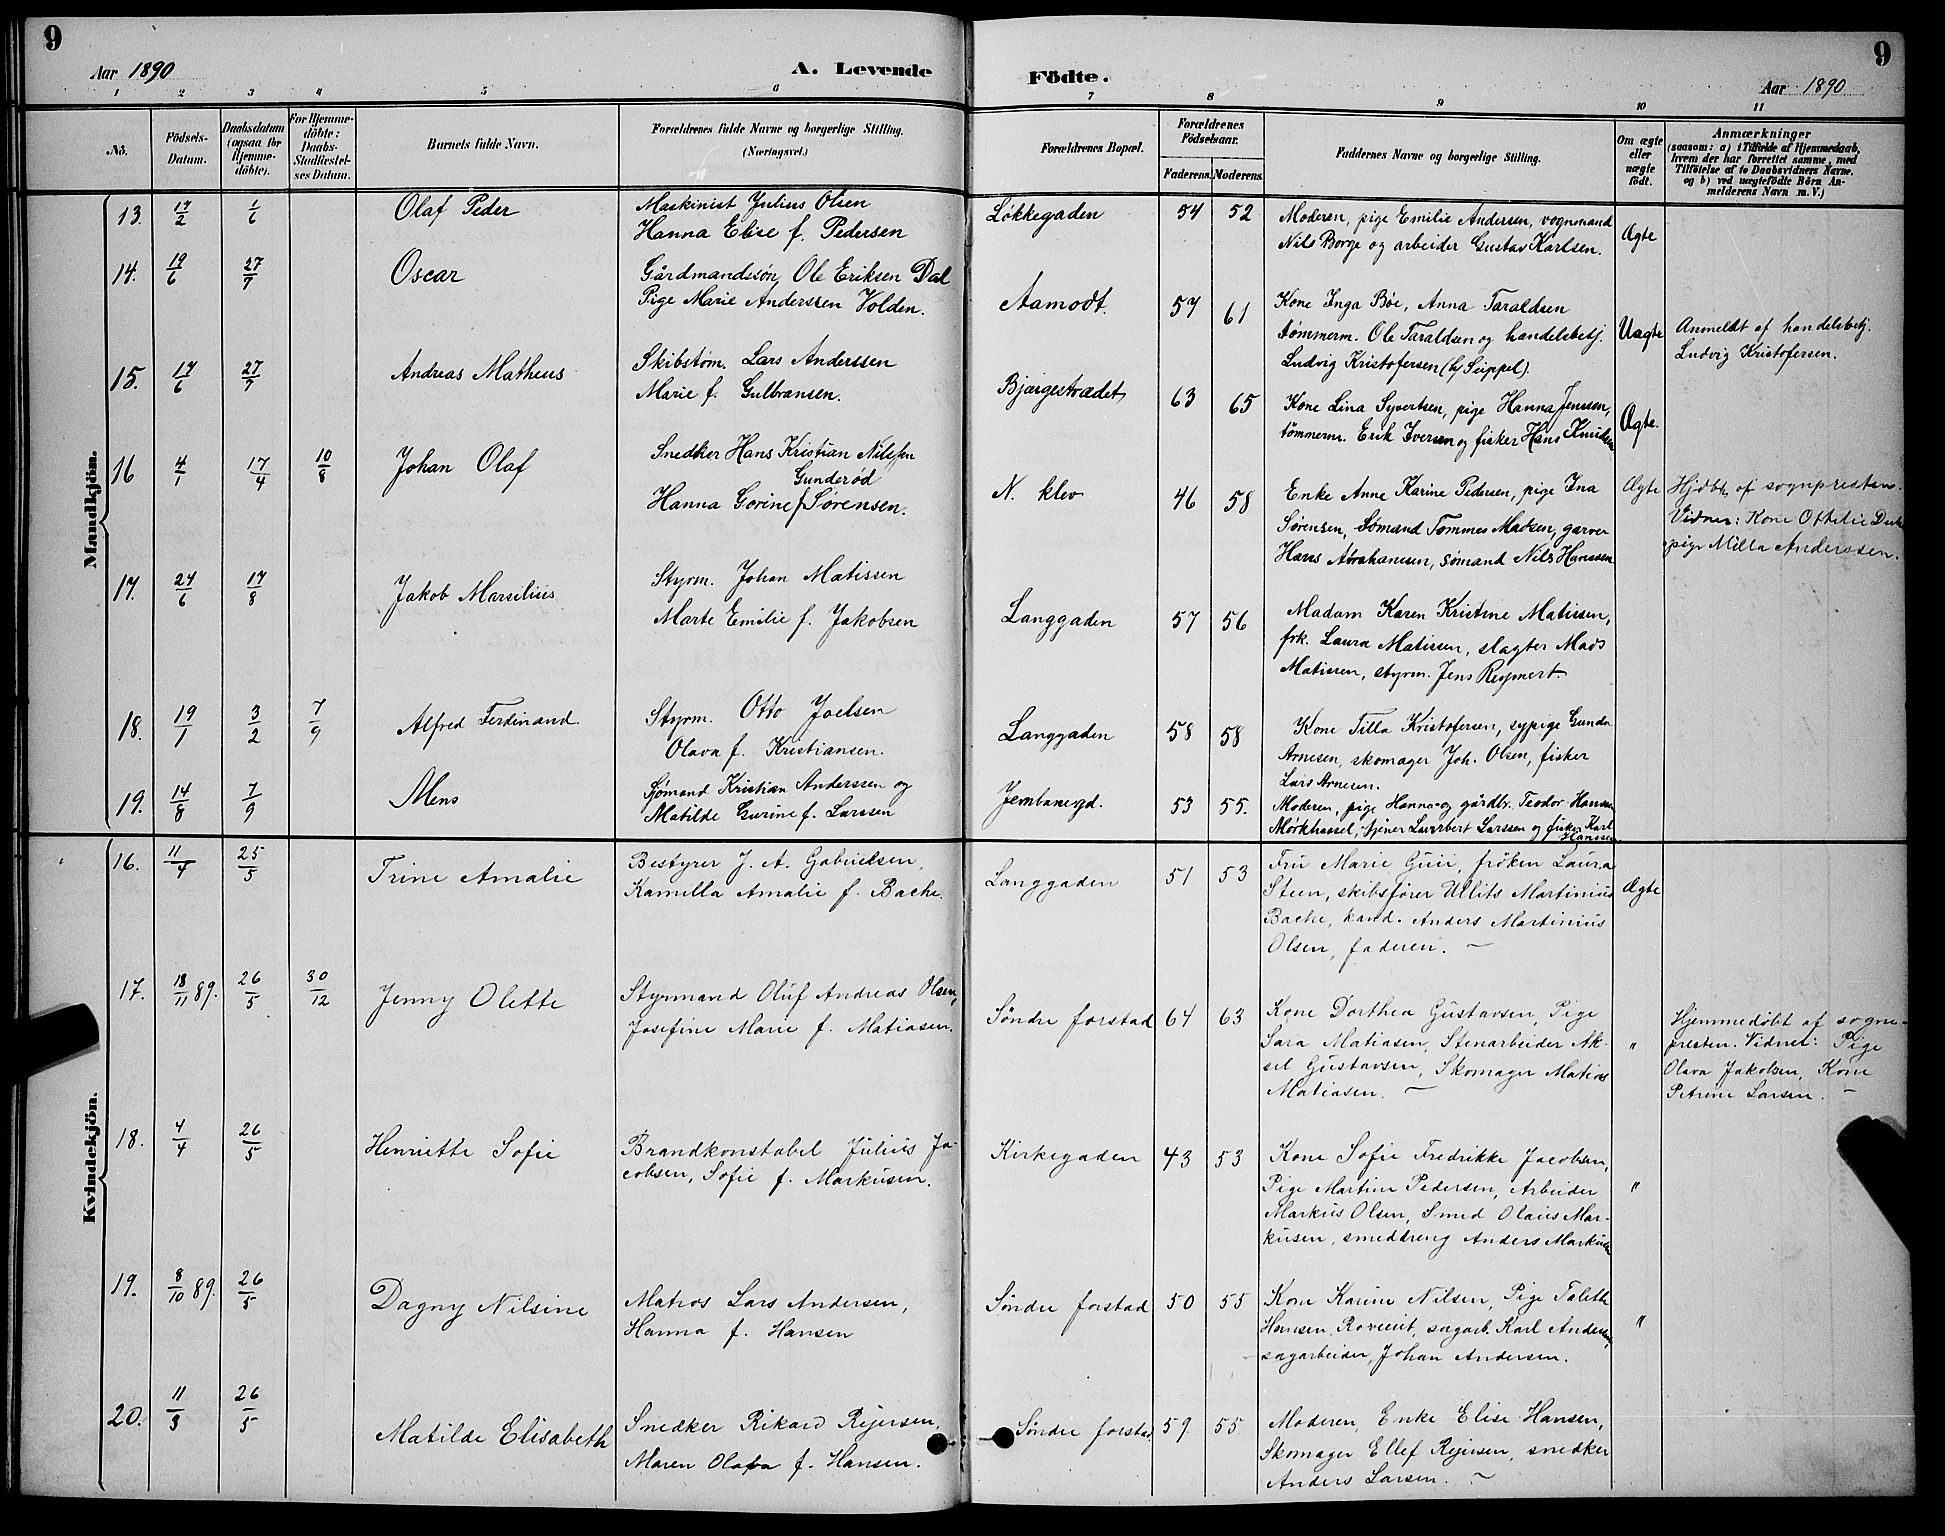 9
Aar 1890
A. Levende
1 2 3 4 5 6
No.
Födsels-
Datum.
Daabsdatum
(ogsaa for
Hjemme-
döbte).
For Hjemme-
döbte:
Daabs-
Stadfæstel-
ses Datum.
Barnets fulde Navn.
Forældrenes fulde Navne og borgerlige Stilling.
(Næringsvei.)
Mandkjön.
13. 17/2 1/6 Olaf Peder
Maskinist Julius Olsen
Hanna Elise f. Pedersen
14. 19/6 27/7 Oscar
Gårdmandssøn Ole Eriksen Dal
Pige Marie Anderssen Volden.
15. 17/6 27/7 Andreas Matheus
Skibstøm. Lars Anderssen
Marie f. Gulbransen.
16 4/1 17/4 10/8 Johan Olaf
Snedker Hans Kristian Nilssen
Gunderød
Hanna Gorine f. Sørensen.
17. 24/6 17/8 Jakob Marsilius
Styrm. Johan Matissen
Marte Emilie f. Jakobsen
18. 19/1 3/2 7/9 Alfred Ferdinand.
Styrm. Otto Joelsen
Olava f. Kristiansen.
19. 14/8 7/9 Mens
Sjømand Kristian Anderssen og
Matilde Gurine f. Larssen
Kvindekjön.
16. 11/4 25/5 Trine Amalie
Bestyrer J. A. Gabrielsen,
Kamilla Amalie f. Bache.
17. 18/11 89. 26/5 30/12 Jenny Olette
Styrmand Oluf Andreas Olsen,
Josefine Marie f. Matiasen.
18. 4/4 26/5 Henriette Sofie
Brandkonstabel Julius Ja-
cobsen, Sofie f. Markusen.
19. 8/10 89. 26/5 Dagny Nilsine
Matros Lars Andersen,
Hanna f. Hansen
20. 11/3 26/5 Matilde Elisabeth
Snedker Rikard Rejersen,
Maren Olava f. Hansen.
9
Födte.
Aar 1890
7 8 9 10 11
Forældrenes Bopæl.
Forældrenes
Födselsaar.
Faderens. Moderens.
Faddernes Navne og borgerlige Stilling.
Om ægte
eller
uægte
födt.
Anmærkninger
(saasom: a) i Tilfælde af Hjemmedaab,
hvem der har forrettet samme, med
Tilföielse af to Daabsvidners Navne.
og b) ved uægtefödte Börn An-
melderens Navn m. V.)
Løkkegaden 54 52
Moderen, pige Emilie Andersen, vognmand
Nils Borge og arbeider Gustav Karlsen.
Ægte
Aamodt. 57 61
Kone Inga Bøe, Anna Taraldsen
tømmerm. Ole Taraldsen og handelsbetj.
Ludvig Kristofersen (hj Seippel).
Uægte
Anmeldt af handelsbetj.
Ludvig Kristofersen.
Bjærgestrædet 63 65
Kone Lina Syvertsen, pige Hanna Jenssen,
tömmerm. Erik Iversen og fisker Hans Knudsen
Ægte.
N. klev 46 58
Enke Anne Karine Pedersen, pige Ina
Sørensen, Sømand Tommes Madsen, garver
Hans Abrahamsen, sømand Nils Hanssen.
Ægte
Hjdbt. af sognepresten.
Vidner: Kone Ottelie
pige Milla Anderssen.
Langgaden 57 56
Madam Karen Kristine Matissen,
frk. Laura Matissen, slagter Mads
Matissen, styrm. Jens Reymert.
Langgaden 58 58
Kone Tilla Kristofersen, sypige Gunda
Arnesen, skomager Joh. Olsen, fisker
Lars Arnesen.
Jernbanegd. 53 55.
Moderen, pige Hanna og gårdbr. Teodor Hansen
Mørkhaasel, tjener Laurbert Larssen og fisker Karl
Hanssen
Langgaden 51 53
Fru Marie Guii, fröken Laura
Steen, skibsfører Ullits Martinius
Bache, kand. Anders Martinius
Olsen, faderen. —
Ægte
Søndre forstad 64 63
Kone Dorthea Gustavsen, Pige
Sara Matiasen, Stenarbeider Ak-
sel Gustavsen, Skomager Matias
Matiasen. —
"
Hjemmedøbt af sogne-
presten. Vidner: Pige
Olava Jakobsen, Kone
Petrine Larsen. —
Kirkegaden 43 53
Kone Sofie Fredrikke Jacobsen,
Pige Martine Pedersen, Arbeider
Markus Olsen, Smed Olaus Mar-
kusen, smeddreng Anders Markusen
"
Søndre forstad 50 55
Kone Karine Nilsen, Pige Taleth
Hansen, sagarb. Karl Andersen,
sagarbeider, Johan Andersen.
"
Søndre forstad. 59. 55
Moderen, Enke Elise Hansen,
Skomager Ellef Rejersen, snedker
Anders Larsen. —